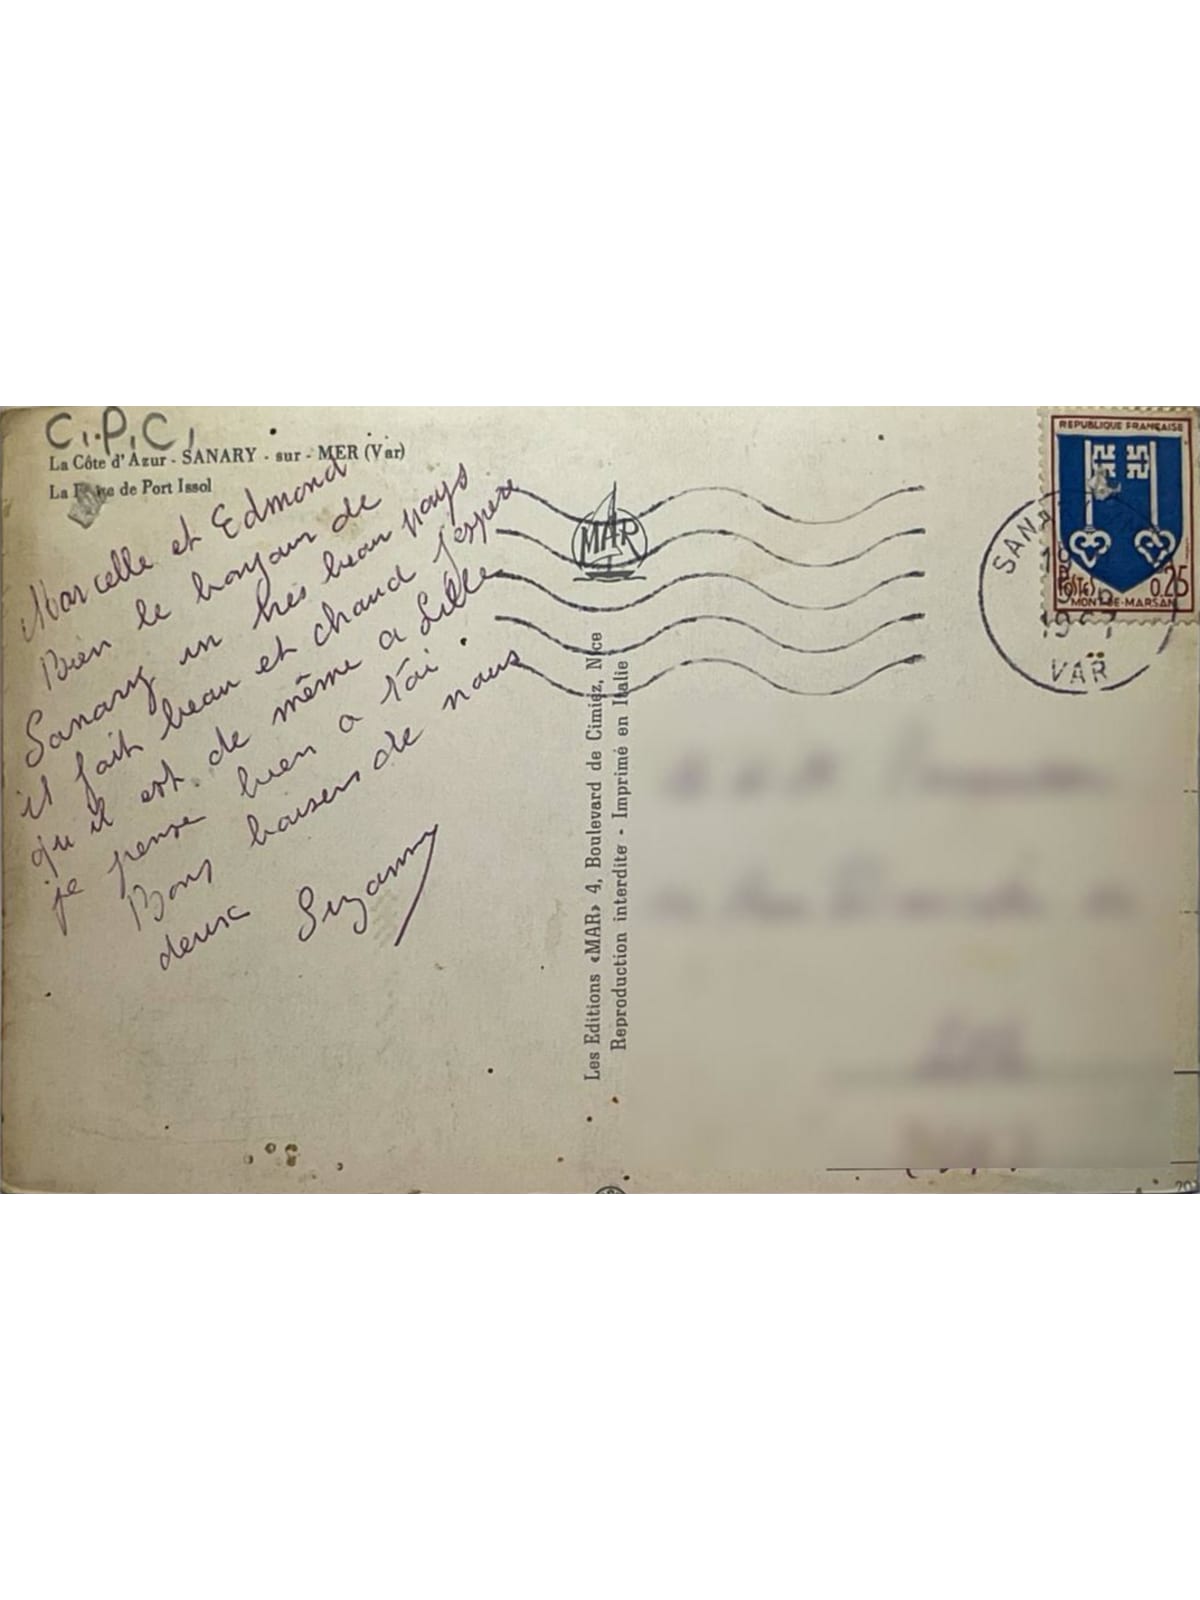 C.P.C.
La Côte d'Azur - SANARY - sur - MER (Var)
La de Port Issol
Marcelle et Edmond
Bien le bonjour de
Sanary un très beau pays
il fait beau et chaud j'espère
qu'il est de même a Lille
je pense bien a toi.
Bons baisers de nous
deux Suzanne
MAR
Les Editions «MAR» 4, Boulevard de Cimiez, Nice
Reproduction interdite - Imprimé en Italie
REPUBLIQUE FRANÇAISE
POSTES 0,25
MONT-DE-MARSAN
VAR